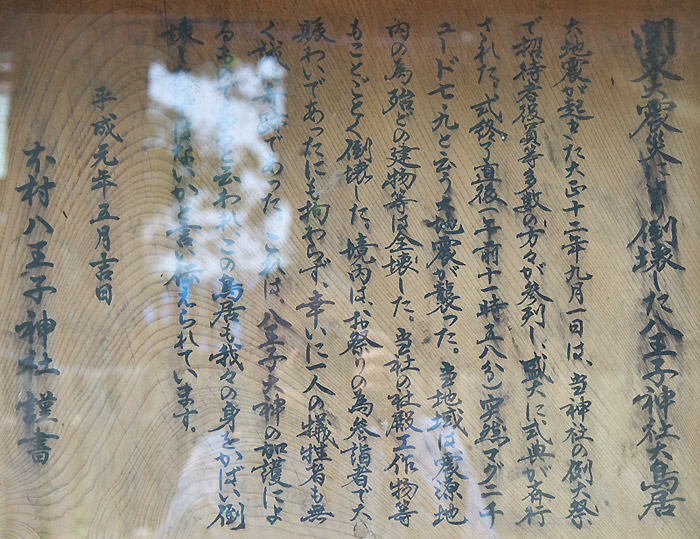 関東大震災により倒壊した八王子神社大鳥居
大地震が起きた大正十二年九月一日は、当神社の例大祭
で招待者役員等多数の方々が参列し、盛大に式典が斉行
された。式終了直後(午前十一時五八分)突然マグニチ
ュード七・九と云う大地震が襲った。当地域は震源地
内の為殆どの建物等は全壊した。当社の社殿工作物等
もことごとく倒壊した。境内は、お祭りの為参詣者で大
賑わいであったにも拘わらず、幸いに一人の犠牲者も無
く であった。これは、八王子大神の加護によ
るものであると云われ、この鳥居も我々の身をかばい倒
壊し はないかと言い伝えられています。
平成元年五月吉日
木村八王子神社 謹書